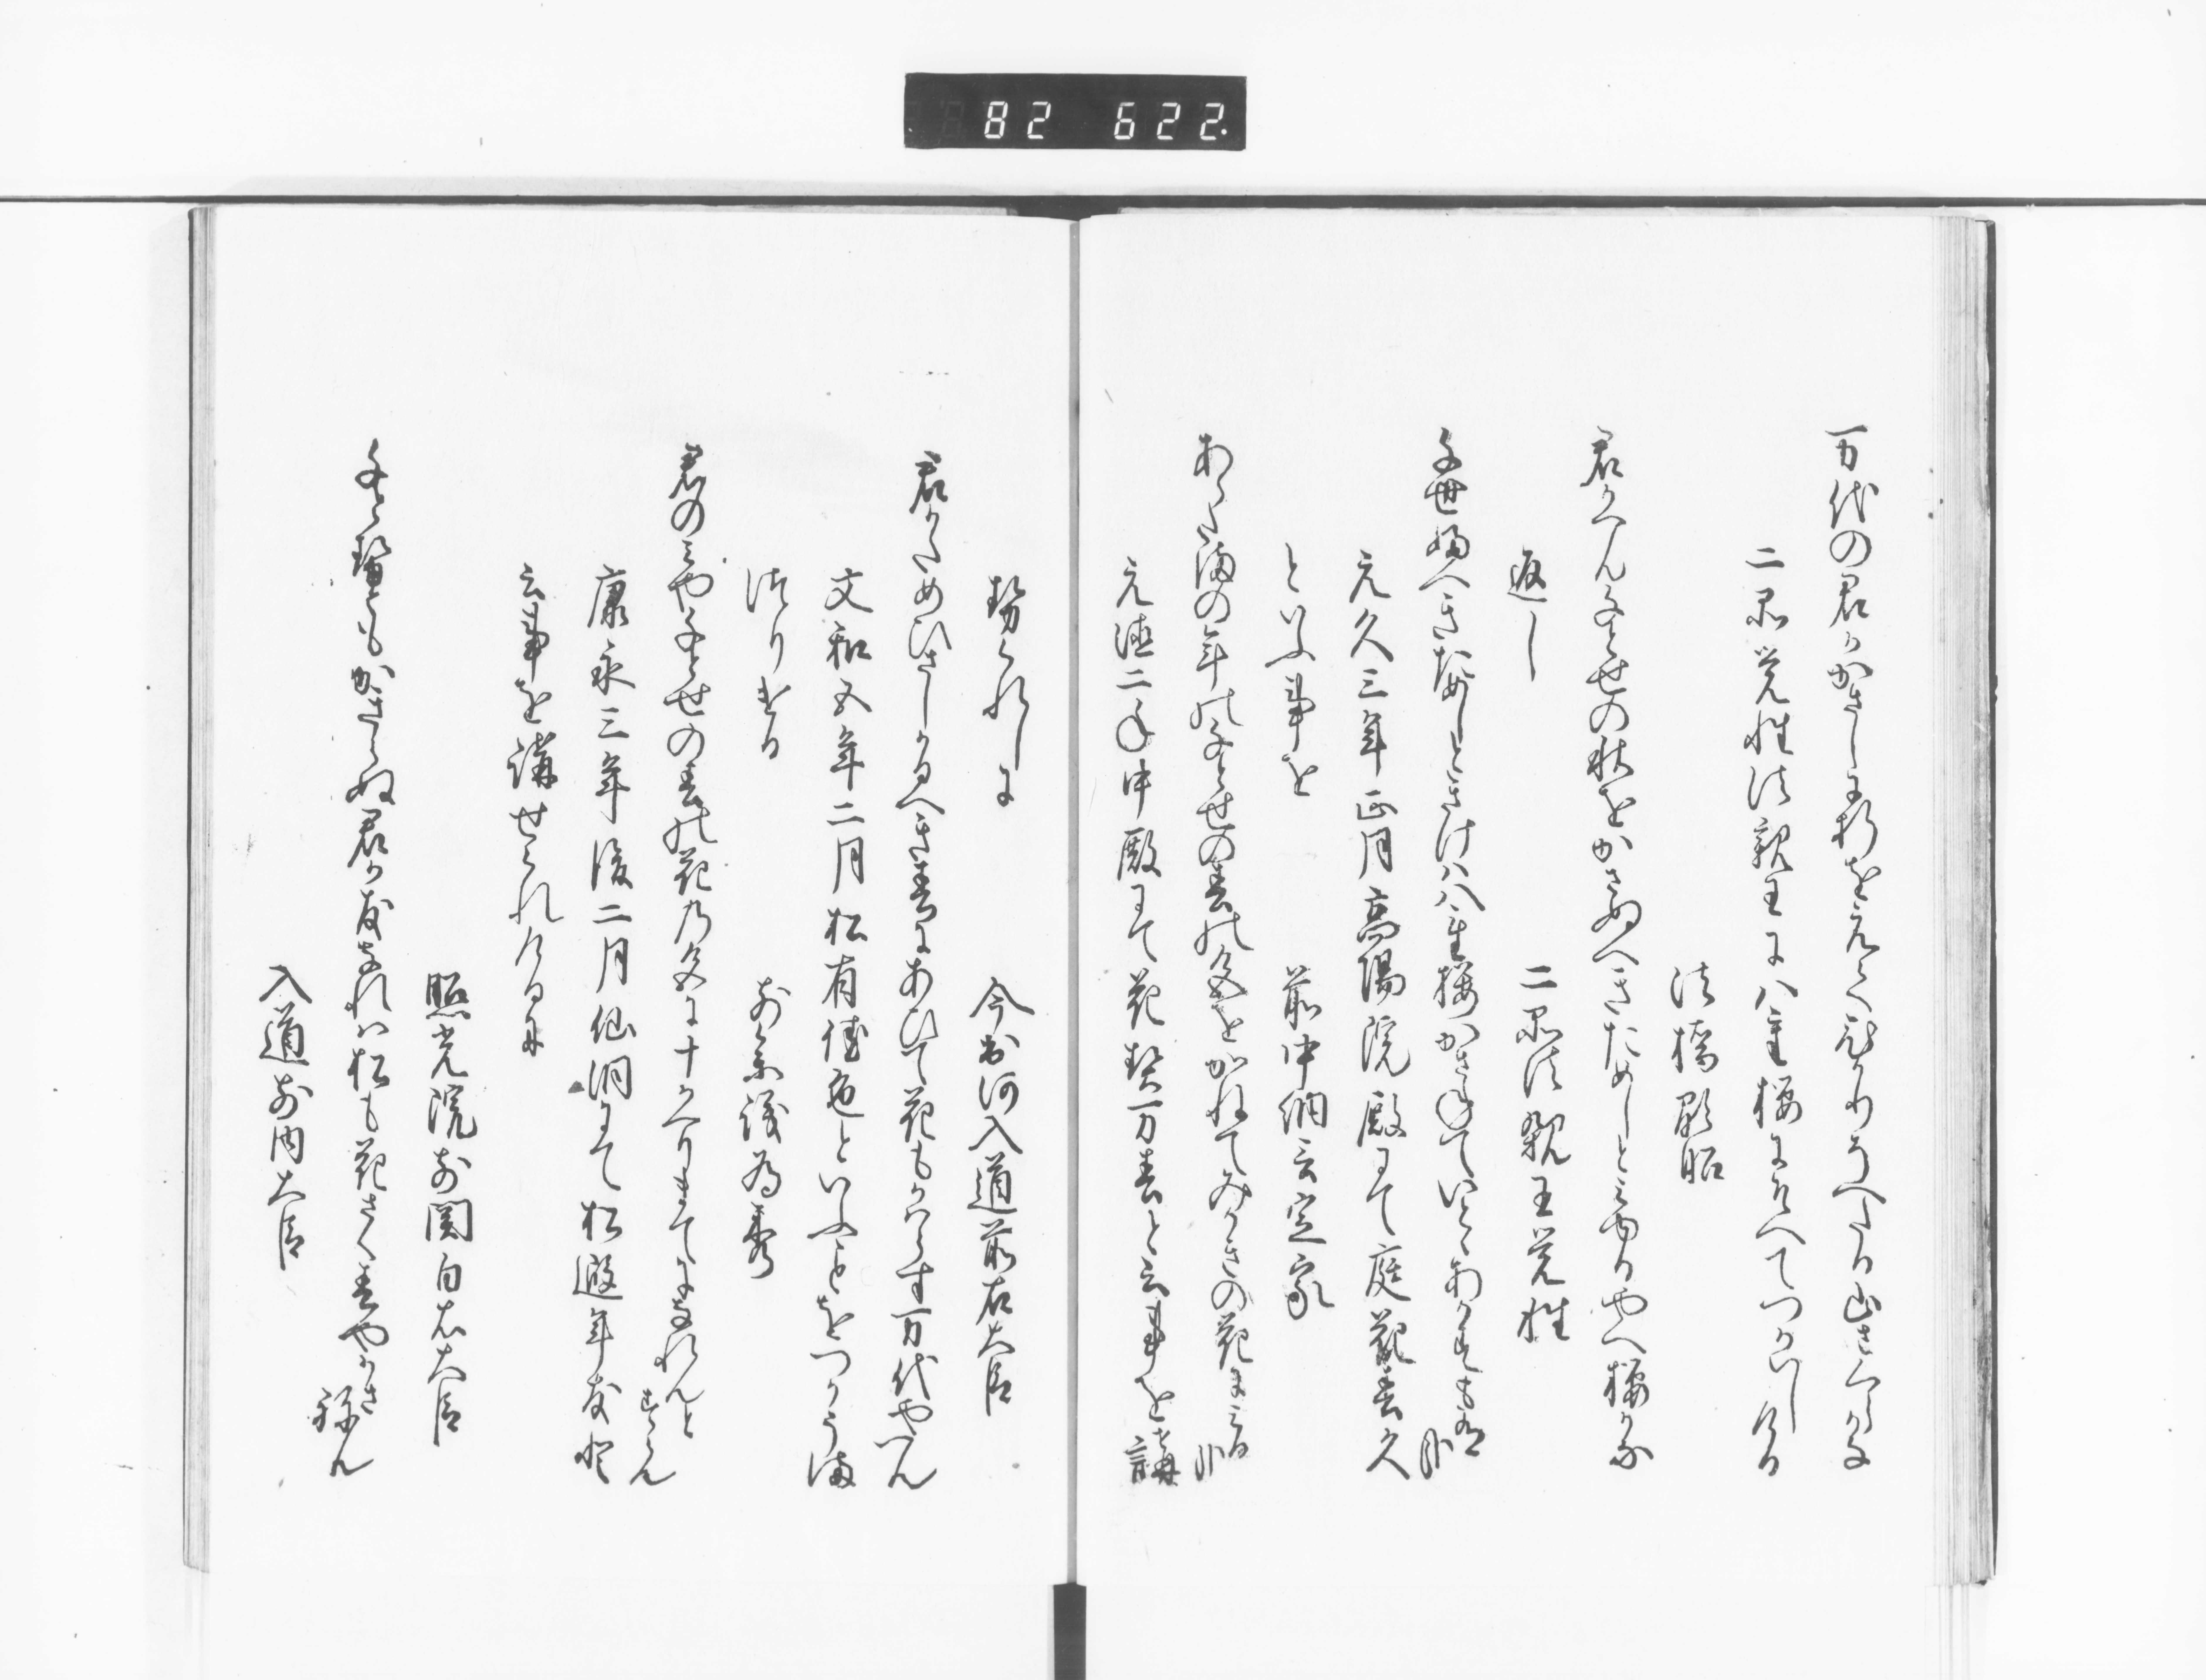 82 622
万代の君かかさしに折をえてひかりそへたる山さくらかな
二品覚性法親王に八重桜にそへてつかはしける
法橋顕昭
君かへん千とせの秋をかさぬへきためしとみゆるやへ桜かな
返し
二品法親王覚性
千世ふへきためしときけは八重桜かさねていとゝあかすも有かな
元久三年正月高陽院殿にて庭花春久
といふ事を
前中納言定家
あらたまの年の千とせの春の色をかねてみかきの花にみるかな
元徳二年中殿にて花契万春と云事を講
せられしに
今出河入道前右大臣
君かためひさしかるへき春にあひて花もかはらす万代やへん
文和五年二月松有佳色といふことをつかうま
つりける
前参議為秀
君のみや千とせの春の花の色に十かへりまてになれんとすらん
康永三年後二月仙洞にて松遐年友と
云事を講せられけるに
照光院前関白右大臣
千とせともかきらぬ君か友なれは松も花さく春やかさねん
入道前内大臣